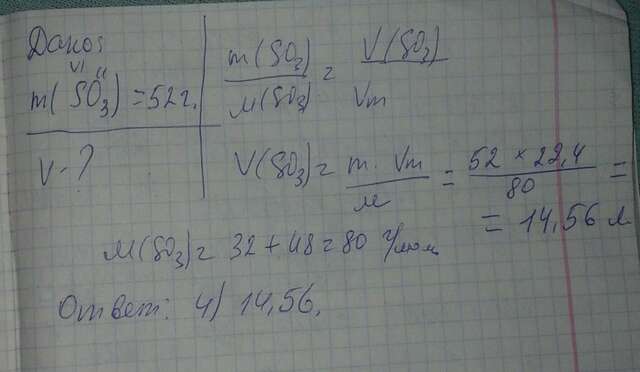 Дано:
VI II
m(SO₃) = 52 г.
V - ?
m(SO₃) / M(SO₃) = V(SO₃) / Vm
V(SO₃) = m · Vm / M = 52 × 22,4 / 80 =
= 14,56 л
M(SO₃) = 32 + 48 = 80 г/моль
Ответ: 4) 14,56.